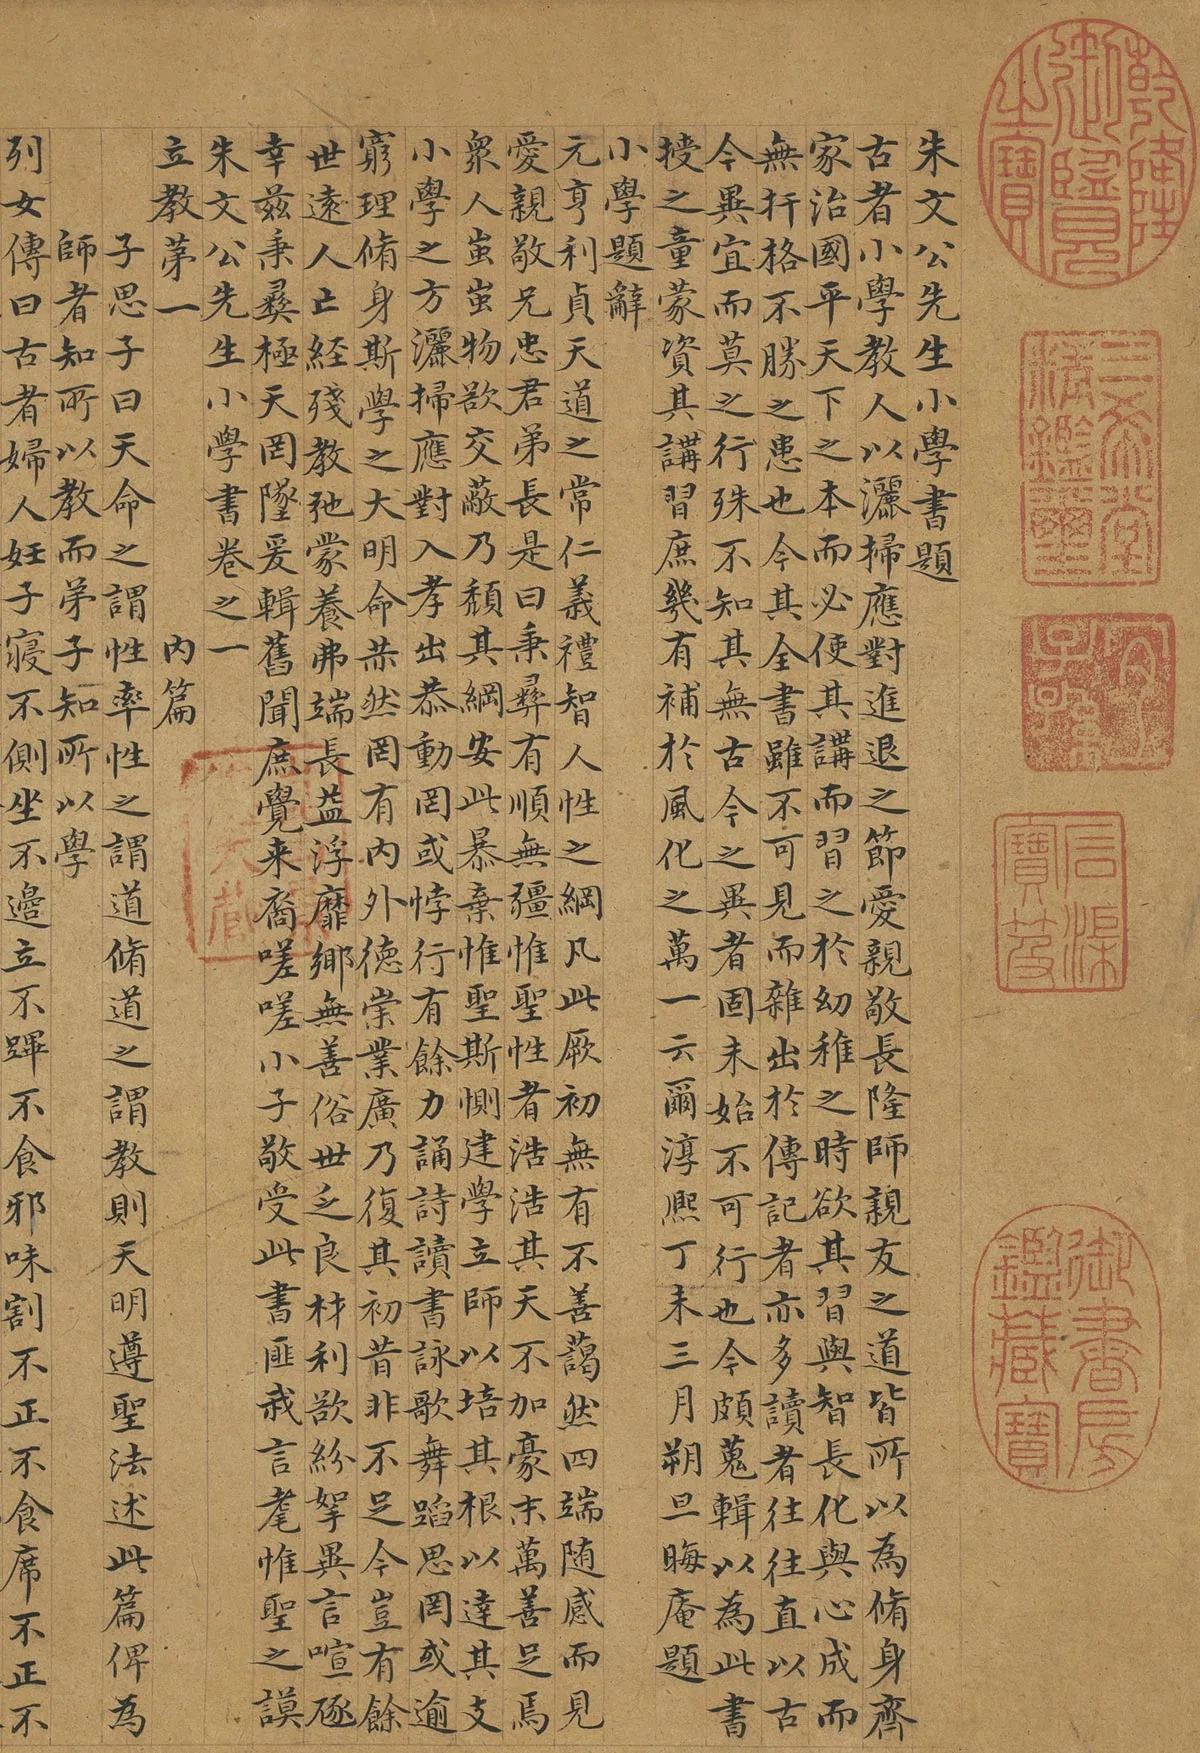 乾隆御覽之寶
三希堂精鑑璽
宜子孫
石渠寶笈
御書房鑑藏寶
朱文公先生小學書題
古者小學教人以灑掃應對進退之節愛親敬長隆師親友之道皆所以為脩身齊
家治國平天下之本而必使其講而習之於幼稚之時欲其習與智長化與心成而
無扞格不勝之患也今其全書雖不可見而雜出於傳記者亦多讀者往往直以古
今異宜而莫之行殊不知其無古今之異者固未始不可行也今頗蒐輯以為此書
授之童蒙資其講習庶幾有補於風化之萬一云爾淳熙丁未三月朔旦晦庵題
小學題辭
元亨利貞天道之常仁義禮智人性之綱凡此厥初無有不善藹然四端随感而見
愛親敬兄忠君弟長是曰秉彝有順無疆惟聖性者浩浩其天不加豪末萬善足焉
衆人蚩蚩物欲交蔽乃頹其綱安此暴棄惟聖斯惻建學立師以培其根以達其支
小學之方灑掃應對入孝出恭動罔或悖行有餘力誦詩讀書詠歌舞蹈思罔或逾
窮理脩身斯學之大明命赫然罔有內外德崇業廣乃復其初昔非不足今豈有餘
世遠人亡経殘教弛蒙養弗端長益浮靡鄉無善俗世乏良材利欲紛挐異言喧豗
幸茲秉彝極天罔墜爰輯舊聞庶覺来裔嗟嗟小子敬受此書匪我言耄惟聖之謨
朱文公先生小學書卷之一
立教第一 內篇
子思子曰天命之謂性率性之謂道脩道之謂教則天明遵聖法述此篇俾為
師者知所以教而弟子知所以學
列女傳曰古者婦人妊子寢不側坐不邊立不蹕不食邪味割不正不食席不正不